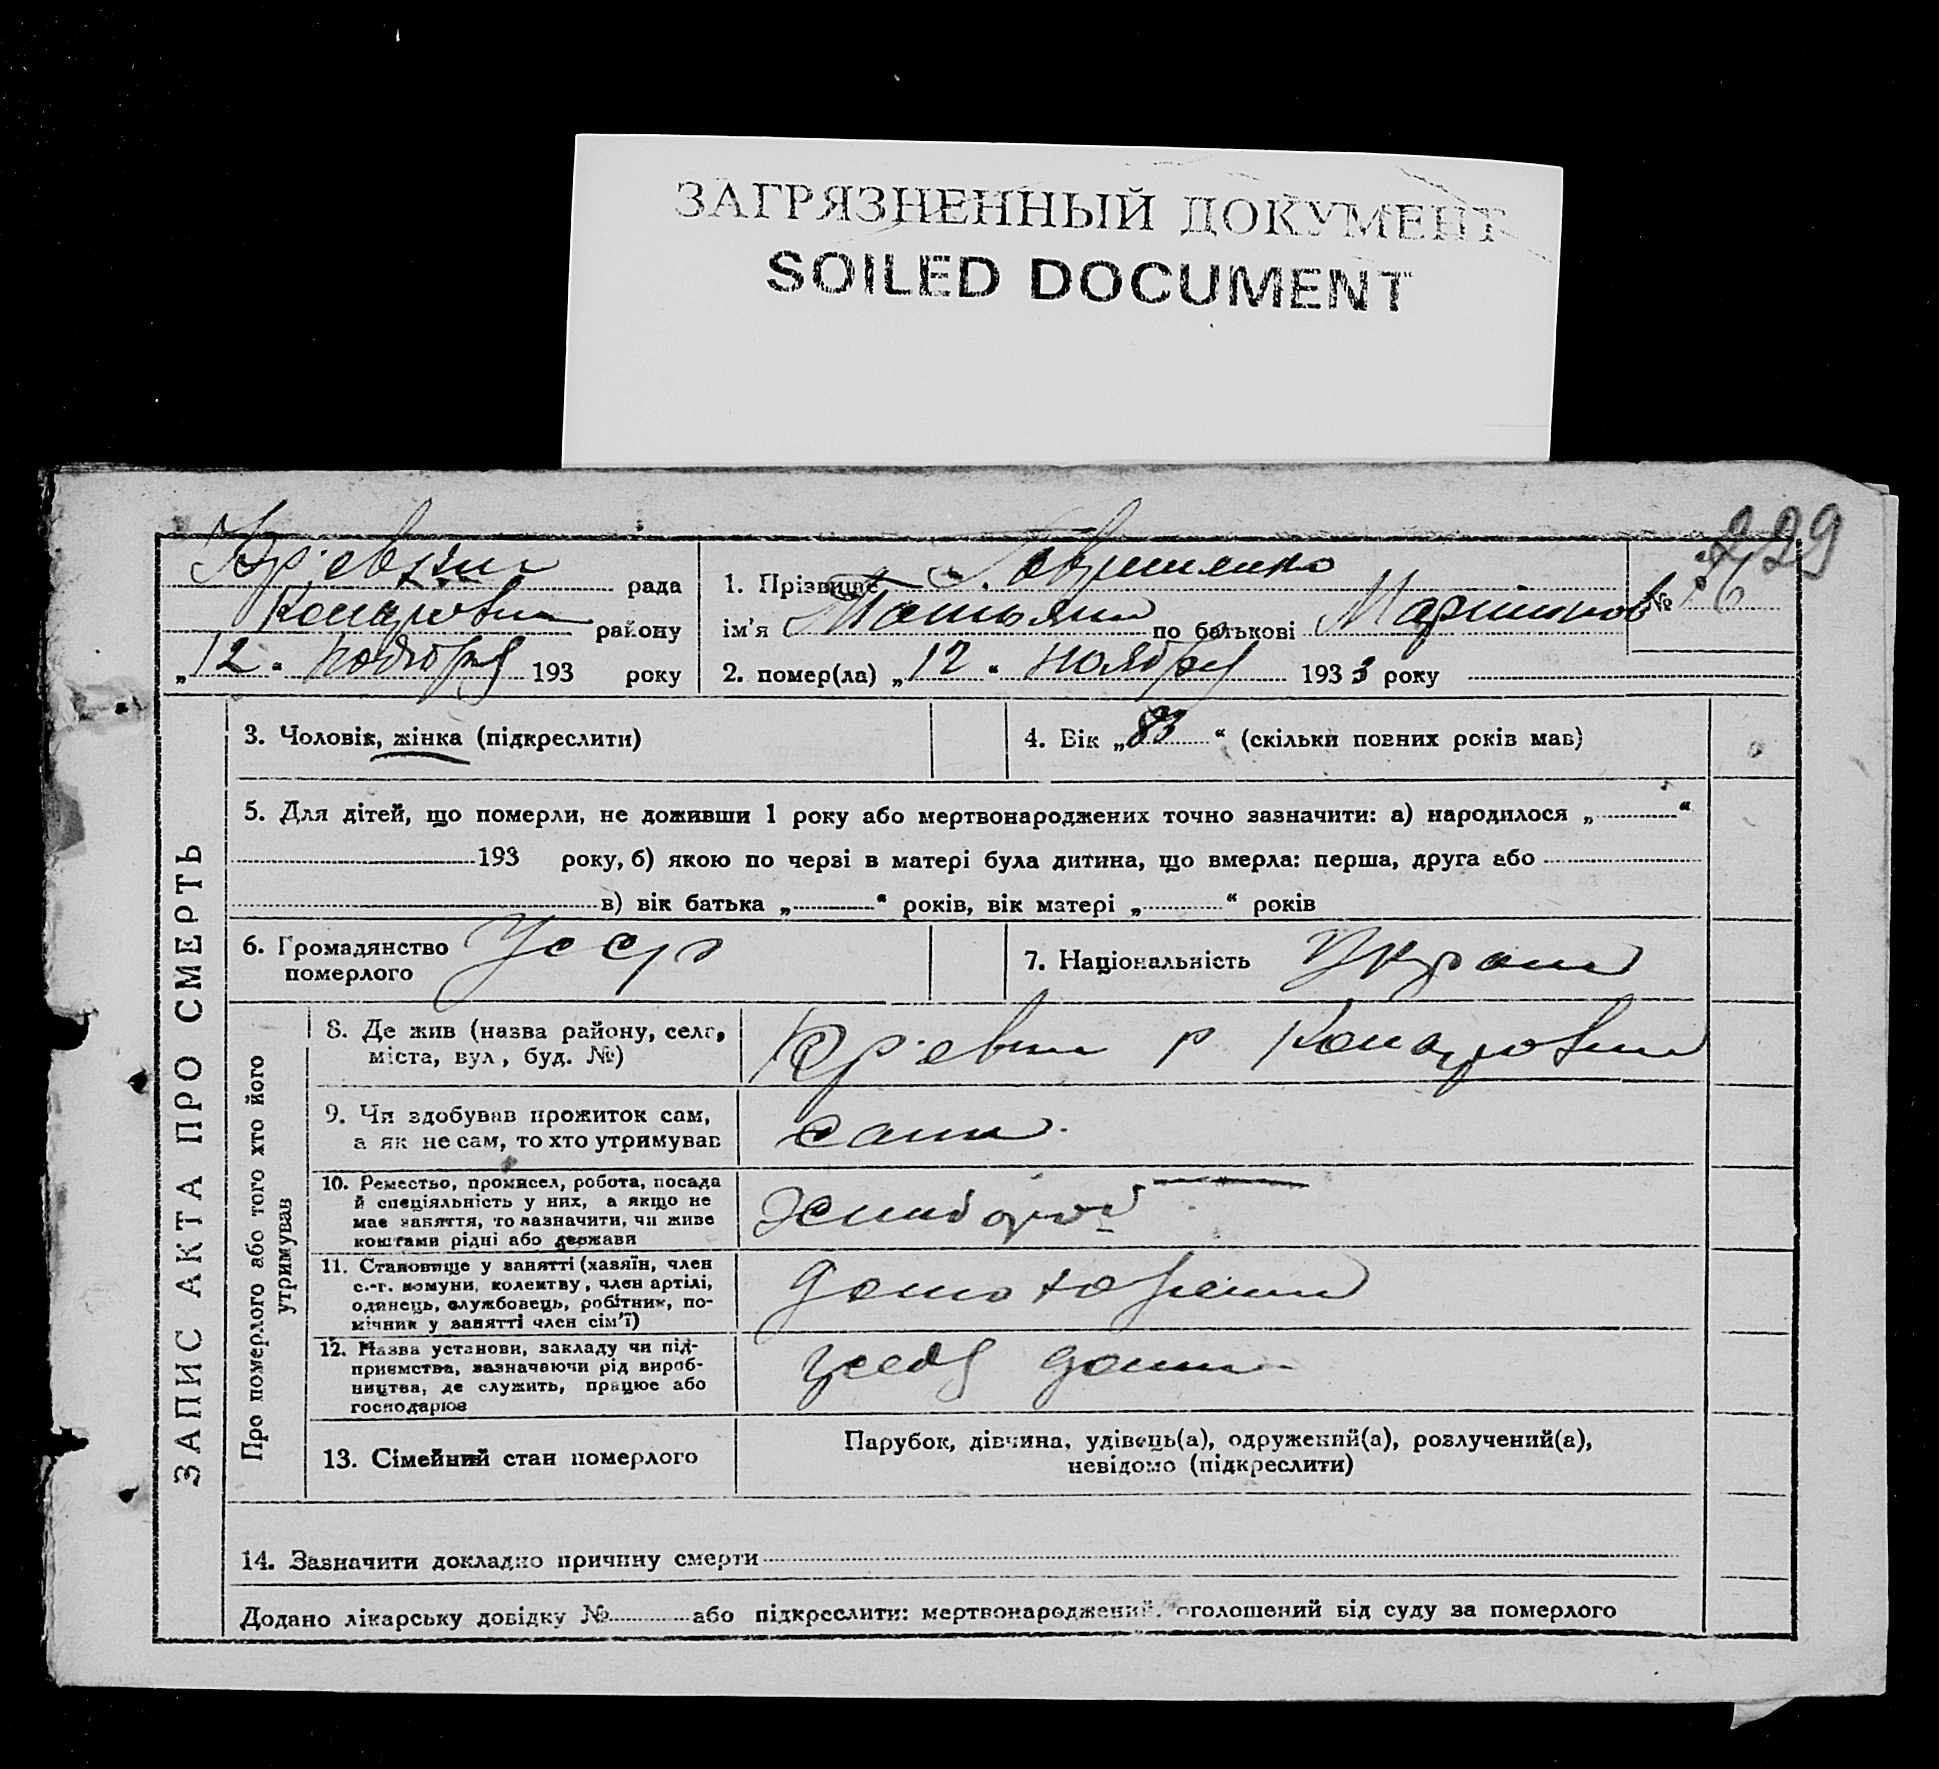 ЗАГРЯЗНЕННЫЙ ДОКУМЕНТ
SOILED DOCUMENT
229
рада
району
"12" ноября 193 року
1. Прізвище
ім'я Татьяна по батькові Мартинов
№
2. помер(ла) "12" ноября 1933 року
ЗАПИС АКТА ПРО СМЕРТЬ
3. Чоловік, жінка (підкреслити)
4. Вік "83" (скільки повних років мав)
5. Для дітей, що померли, не доживши 1 року або мертвонароджених точно зазначити: а) народилося " "
193 року, б) якою по черзі в матері була дитина, що вмерла: перша, друга або
в) вік батька " " років, вік матері " " років
6. Громадянство померлого Усср
7. Національність Украин
Про померлого або того хто його утримував
8. Де жив (назва району, села,
міста, вул, буд. №)
9. Чи здобував прожиток сам,
а як не сам, то хто утримував
сама
10. Ремество, промисел, робота, посада
й спеціяльність у них, а якщо не
має заняття, то зазначити, чи живе
коштами рідні або держави
11. Становище у занятті (хазяїн, член
с.-г. комуни, колективу, член артілі,
одинець, службовець, робітник, по-
мічник у занятті член сім'ї)
12. Назва установи, закладу чи під-
приємства, зазначаючи рід вироб-
ництва, де служить, працює або
господарює
13. Сімейний стан померлого
Парубок, дівчина, удівець(а), одружений(а), розлучений(а),
невідомо (підкреслити)
14. Зазначити докладно причину смерти
Додано лікарську довідку № або підкреслити: мертвонароджений, оголошений від суду за померлого